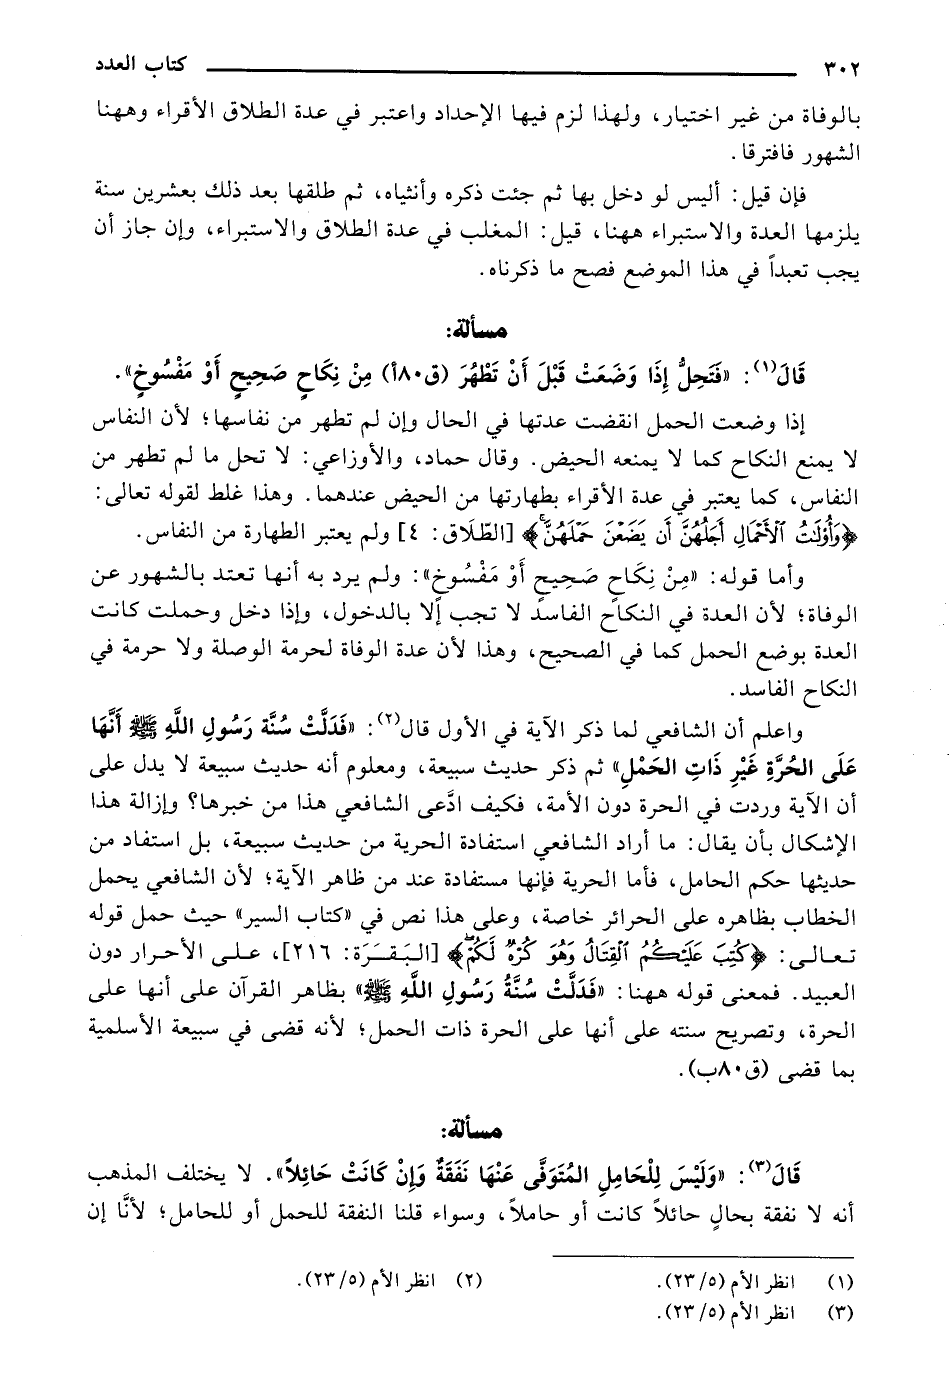 ٣٠٢ كتاب العدد
بالوفاة من غير اختيار، ولهذا لزم فيها الإحداد واعتبر في عدة الطلاق الأقراء وههنا
الشهور فافترقا.
فإن قيل: أليس لو دخل بها ثم جئت ذكره وأنثياه، ثم طلقها بعد ذلك بعشرين سنة
يلزمها العدة والاستبراء ههنا، قيل: المغلب في عدة الطلاق والاستبراء، وإن جاز أن
يجب تعبداً في هذا الموضع فصح ما ذكرناه.
مسألة:
قَالَ(١): «فَتَحِلُّ إِذَا وَضَعَتْ قَبْلَ أَنْ تَطْهُرَ (ق٨٠أ) مِنْ نِكَاحٍ صَحِيحٍ أَوْ مَفْسُوخٍ».
إذا وضعت الحمل انقضت عدتها في الحال وإن لم تطهر من نفاسها؛ لأن النفاس
لا يمنع النكاح كما لا يمنعه الحيض. وقال حماد، والأوزاعي: لا تحل ما لم تطهر من
النفاس، كما يعتبر في عدة الأقراء بطهارتها من الحيض عندهما. وهذا غلط لقوله تعالى:
﴿وَأُوْلَٰتُ ٱلْأَحْمَالِ أَجَلُهُنَّ أَن يَضَعْنَ حَمْلَهُنَّ ۚ﴾ [الطّلَاق: ٤] ولم يعتبر الطهارة من النفاس.
وأما قوله: «مِنْ نِكَاحٍ صَحِيحٍ أَوْ مَفْسُوخٍ»: ولم يرد به أنها تعتد بالشهور عن
الوفاة؛ لأن العدة في النكاح الفاسد لا تجب إلا بالدخول، وإذا دخل وحملت كانت
العدة بوضع الحمل كما في الصحيح، وهذا لأن عدة الوفاة لحرمة الوصلة ولا حرمة في
النكاح الفاسد.
واعلم أن الشافعي لما ذكر الآية في الأول قال(٢): «فَدَلَّتْ سُنَّة رَسُولِ اللَّهِ ﷺ أَنَّهَا
عَلَى الحُرَّةِ غَيْرِ ذَاتِ الحَمْلِ» ثم ذكر حديث سبيعة، ومعلوم أنه حديث سبيعة لا يدل على
أن الآية وردت في الحرة دون الأمة، فكيف ادَّعى الشافعي هذا من خبرها؟ وإزالة هذا
الإشكال بأن يقال: ما أراد الشافعي استفادة الحرية من حديث سبيعة، بل استفاد من
حديثها حكم الحامل، فأما الحرية فإنها مستفادة عند من ظاهر الآية؛ لأن الشافعي يحمل
الخطاب بظاهره على الحرائر خاصة، وعلى هذا نص في «كتاب السير» حيث حمل قوله
تعالى: ﴿كُتِبَ عَلَيْكُمُ ٱلْقِتَالُ وَهُوَ كُرْهٌ لَّكُمْ ۖ﴾ [البَقَرَة: ٢١٦]، على الأحرار دون
العبيد. فمعنى قوله ههنا: «فَدَلَّتْ سُنَّةُ رَسُولِ اللَّهِ ﷺ» بظاهر القرآن على أنها على
الحرة، وتصريح سنته على أنها على الحرة ذات الحمل؛ لأنه قضى في سبيعة الأسلمية
بما قضى (ق٨٠ب).
مسألة:
قَالَ(٣): «وَلَيْسَ لِلْحَامِلِ المُتَوَفَّى عَنْهَا نَفَقَةٌ وَإِنْ كَانَتْ حَائِلاً». لا يختلف المذهب
أنه لا نفقة بحالٍ حائلاً كانت أو حاملاً، وسواء قلنا النفقة للحمل أو للحامل؛ لأنَّا إن
(١) انظر الأم (٢٣/٥). (٢) انظر الأم (٢٣/٥).
(٣) انظر الأم (٢٣/٥).